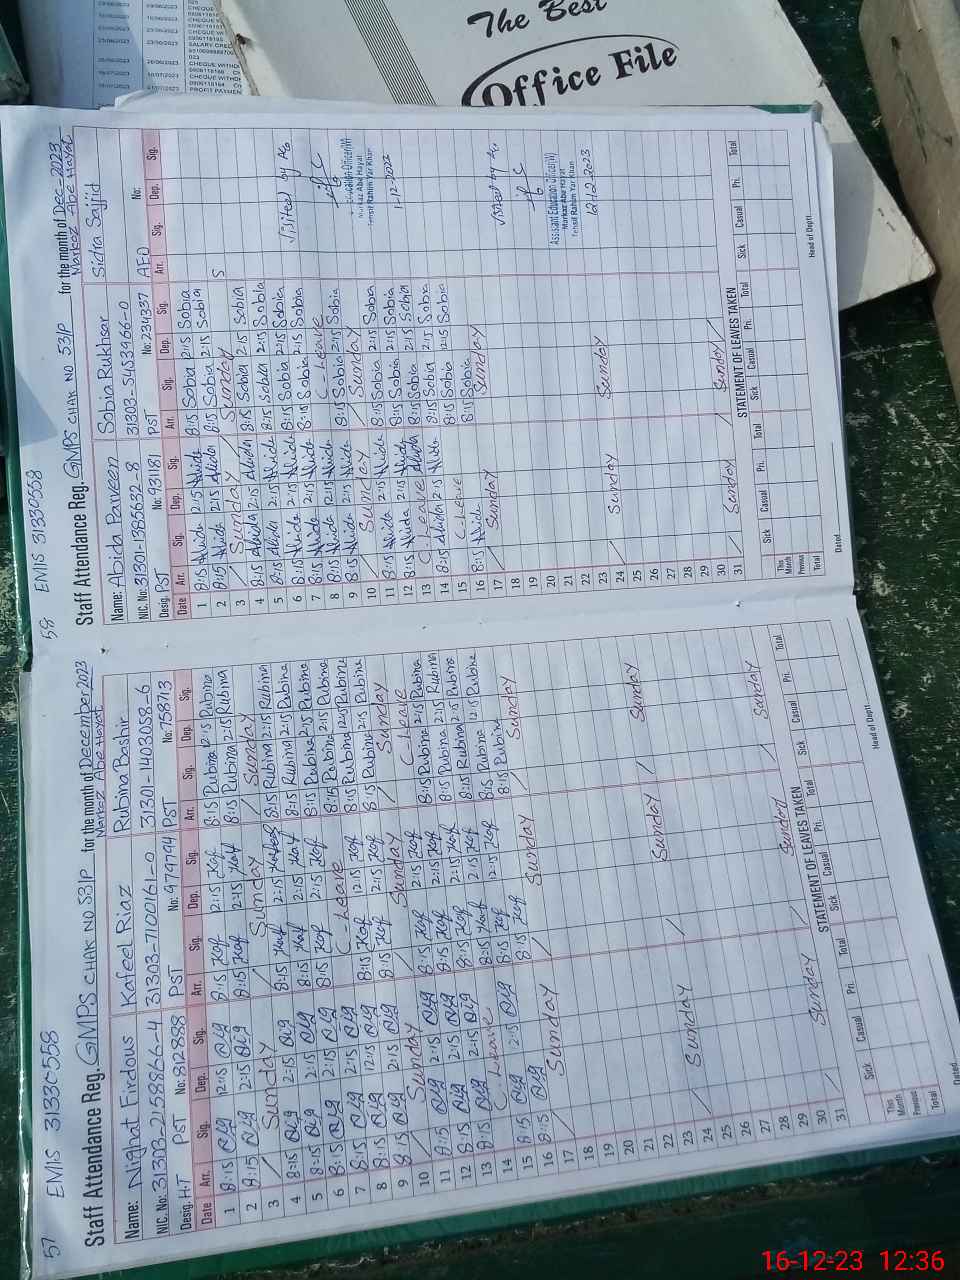 The Best
Office File
57 EMIS 31330558
Staff Attendance Reg. GMPS CHAK NO 53/P for the month of December 2023
Markaz Abe Hayat
Name: Nighat Firdous Kafeel Riaz Rubina Bashir
NIC. No: 31303-2158866-4 31303-7100161-0 31301-1403058-6
Desig. H.T PST No: 812888 PST No: 979774 PST No: 758713
Date Arr. Sig. Dep. Sig. Arr. Sig. Dep. Sig. Arr. Sig. Dep. Sig.
1 8:15 12:15 8:15 Kaf 2:15 Kaf 8:15 Rubina 12:15 Rubina
2 8:15 2:15 8:15 Kaf 2:15 Kaf 8:15 Rubina 2:15 Rubina
3 Sunday Sunday Sunday
4 8:15 2:15 8:15 Kaf 2:15 8:15 Rubina 2:15 Rubina
5 8:15 2:15 8:15 Kaf 2:15 Kaf 8:15 Rubina 2:15 Rubina
6 8:15 2:15 8:15 Kaf 2:15 Kaf 8:15 Rubina 2:15 Rubina
7 8:15 2:15 C-Leave 8:15 Rubina 2:15 Rubina
8 8:15 12:15 8:15 Kaf 12:15 Kaf 8:15 Rubina 12:15 Rubina
9 8:15 2:15 8:15 Kaf 2:15 Kaf 8:15 Rubina 2:15 Rubina
10 Sunday Sunday Sunday
11 8:15 2:15 8:15 Kaf 2:15 Kaf C-Leave
12 8:15 2:15 8:15 Kaf 2:15 Kaf 8:15 Rubina 2:15 Rubina
13 8:15 2:15 8:15 Kaf 2:15 Kaf 8:15 Rubina 2:15 Rubina
14 C.Leave 8:15 Kaf 2:15 Kaf 8:15 Rubina 2:15 Rubina
15 8:15 2:15 8:15 Kaf 12:15 Kaf 8:15 Rubina 12:15 Rubina
16 8:15 8:15 Kaf 8:15 Rubina
17 Sunday Sunday Sunday
18
19
20
21
22
23
24 Sunday Sunday Sunday
25
26
27
28
29
30
31 Sunday Sunday Sunday
STATEMENT OF LEAVES TAKEN
Sick Casual Pri. Total Sick Casual Pri. Total Sick Casual Pri. Total
This Month
Previous
Total
Dated Head of Deptt
58 EMIS 31330558
Staff Attendance Reg. GMPS CHAK NO 53/P for the month of Dec-2023
Markaz Abe Hayat
Name: Abida Parveen Sobia Rukhsar Sidra Sajjid
NIC. No: 31301-1385632-8 31303-5453966-0
Desig. PST No: 931181 PST No: 2134337 AEO No:
Date Arr. Sig. Dep. Sig. Arr. Sig. Dep. Sig. Arr. Sig. Dep. Sig.
1 8:15 Abida 2:15 Abida 8:15 Sobia 2:15 Sobia
2 8:15 Abida 2:15 Abida 8:15 Sobia 2:15 Sobia S
3 Sunday Sunday
4 8:15 Abida 2:15 Abida 8:15 Sobia 2:15 Sobia
5 8:15 Abida 2:15 Abida 8:15 Sobia 2:15 Sobia
6 8:15 Abida 2:15 Abida 8:15 Sobia 2:15 Sobia Visited by AEO
7 8:15 Abida 2:15 Abida 8:15 Sobia 2:15 Sobia
8 8:15 Abida 12:15 Abida C-Leave
9 8:15 Abida 2:15 Abida 8:15 Sobia 2:15 Sobia Education Officer(W)
Markaz Abe Hayat
Tehsil Rahim Yar Khan
10 Sunday Sunday
11 8:15 Abida 2:15 Abida 8:15 Sobia 2:15 Sobia
12 8:15 Abida 2:15 Abida 8:15 Sobia 2:15 Sobia
13 C-Leave 8:15 Sobia 2:15 Sobia
14 8:15 Abida 2:15 Abida 8:15 Sobia 2:15 Sobia
15 C-Leave 8:15 Sobia 12:15 Sobia
16 8:15 Abida 8:15 Sobia
17 Sunday Sunday
18 Visited by
19
20
21 Assistant Education Officer(W)
Markaz Abe Hayat
Tehsil Rahim Yar Khan
22
23 12-12-2023
24 Sunday Sunday
25
26
27
28
29
30
31 Sunday Sunday
STATEMENT OF LEAVES TAKEN
Sick Casual Pri. Total Sick Casual Pri. Total Sick Casual Pri. Total
This Month
Previous
Total
Dated Head of Deptt:
16-12-23 12:36